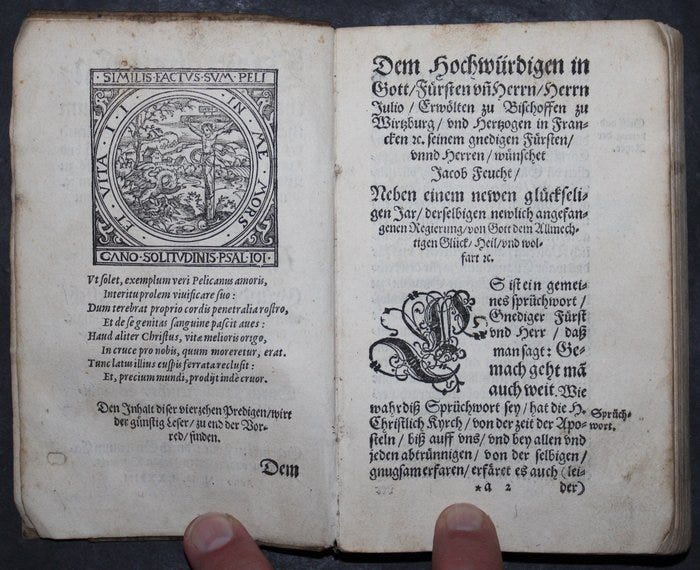 SIMILIS FACTVS SVM PELI
CANO SOLITVDINIS PSAL IOI
IN ME MORS
ET VITA
Vt solet, exemplum veri Pelicanus amoris,
Interitu prolem viuificare suo:
Dum terebrat proprio cordis penetralia rostro,
Et de se genitas sanguine pascit aues:
Haud aliter Christus, vitæ melioris origo,
In cruce pro nobis, quum moreretur, erat.
Tunc latus illius cuspis ferrata reclusit:
Et, precium mundi, prodijt inde cruor.
Den Inhalt diser vierzehen Predigen/wirt
der günstig Leser/ zu end der Vor-
red/finden.
Dem
Dem Hochwürdigen in
Gott/Fürsten vñ Herrn/Herrn
Julio/ Erwölten zu Bischoffen zu
Wirtzburg/ vnd Hertzogen in Fran-
cken ꝛc. seinem gnedigen Fürsten/
vnnd Herren/ wünschet
Jacob Feucht/
Neben einem newen glückseli-
gen Jar/ derselbigen newlich angefan-
genen Regierung/von Gott dem Allmech-
tigen Glück/ Heil/vnd wol-
fart ꝛc.
ES ist ein gemei-
nes sprüchwort/
Gnediger Fürst
vnd Herr/ daß
man sagt: Ge-
mach geht mã
auch weit. Wie
wahr diß Sprüchwort sey/ hat die H.
Christlich Kyrch/ von der zeit der Apo-
steln/ biß auff vns/ vnd bey allen vnd
jeden abtrünnigen/ von der selbigen/
gnugsam erfaren/ erfäret es auch (lei-
*a 2 der)
Sprüch-
wort.